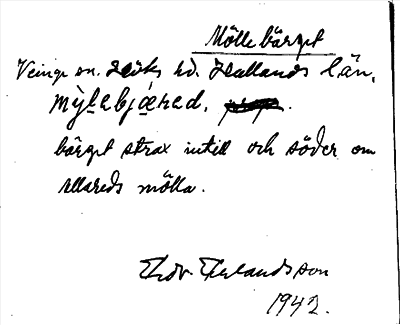 Mölle bärget
Veinge sn. Höks hd. Hallands län.
mỳlabjǽred.
bärget strax intill och söder om
Allareds mölla.
Edv. Erlandsson
1942.